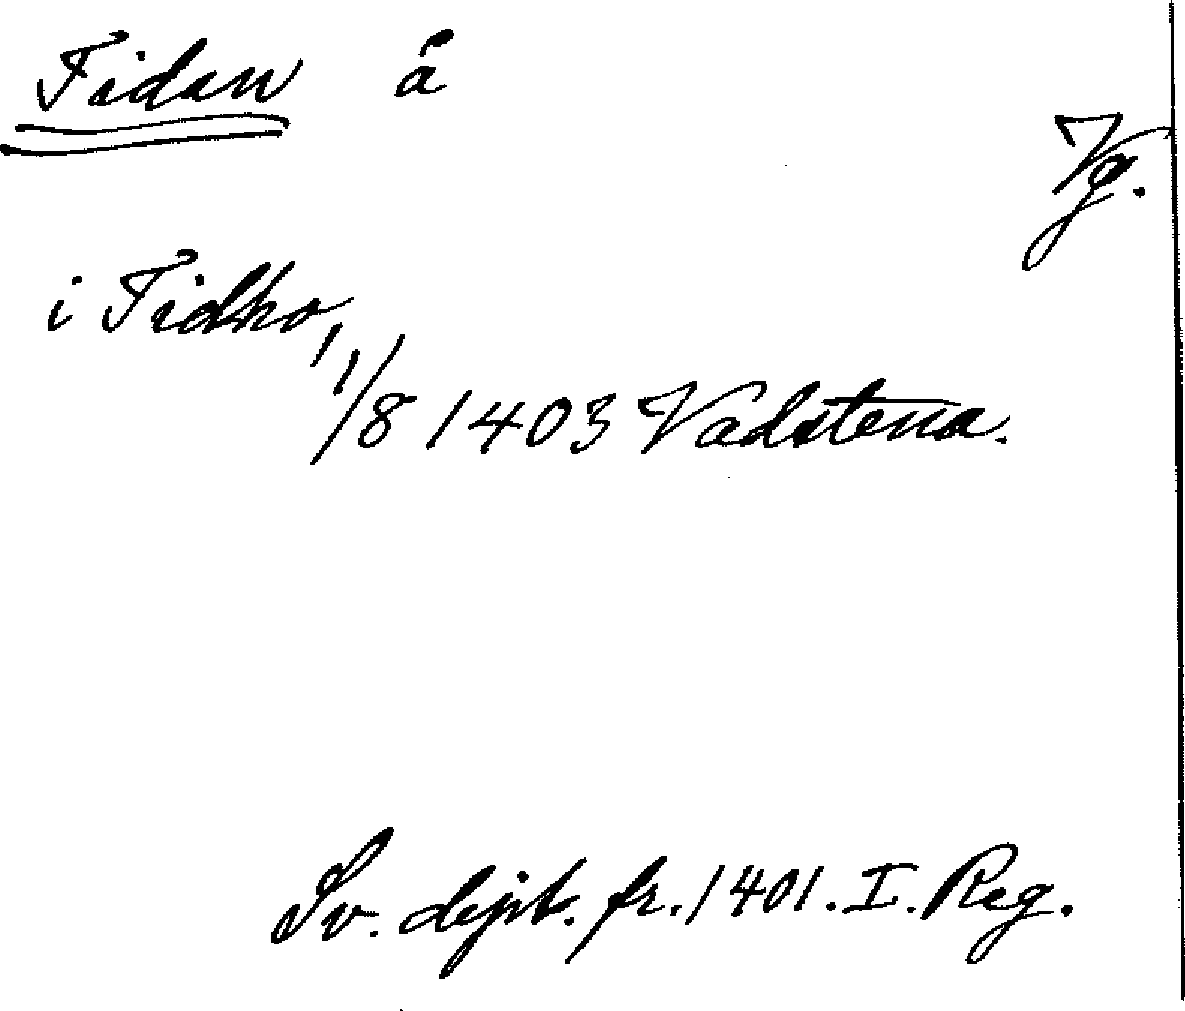 Tidan å
Vg.
i Tidho,
1/8 1403 Vadstena.
Sv. dipl. fr. 1401. I. Reg.